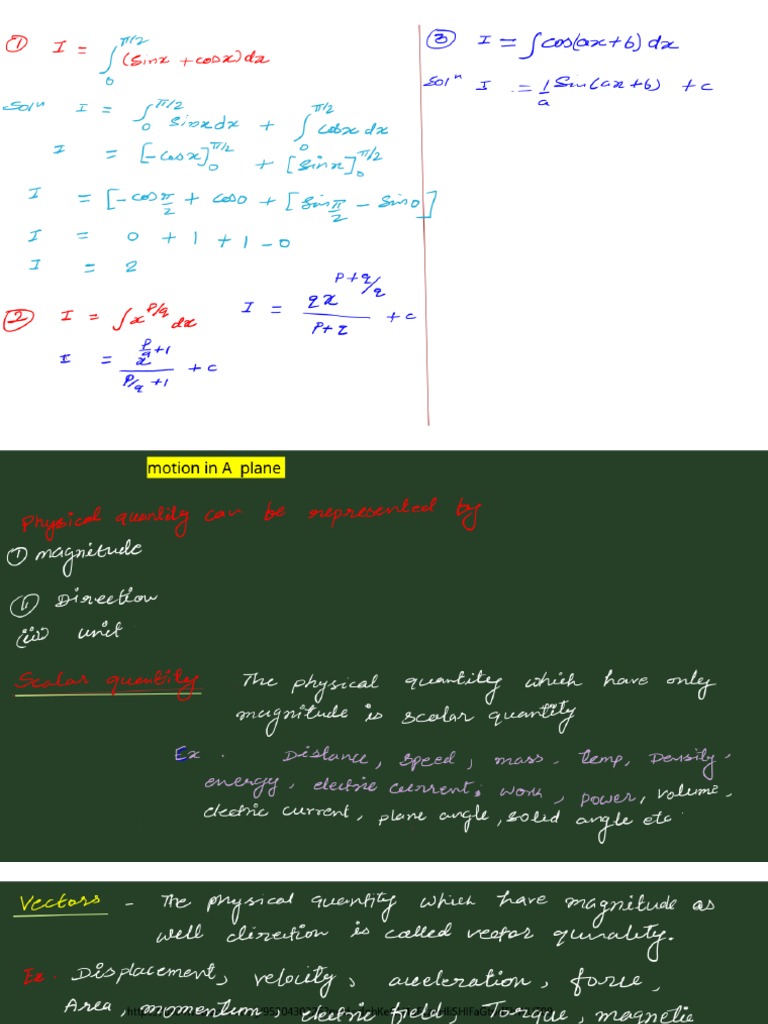 ① I = ∫₀^π/2 (sinx + cosx) dx
Solⁿ I = ∫₀^π/2 sinx dx + ∫₀^π/2 cosx dx
I = [-cosx]₀^π/2 + [sinx]₀^π/2
I = [-cos π/2 + cos0 + [sin π/2 - sin0]
I = 0 + 1 + 1 - 0
I = 2
② I = ∫x^p/q dx
I = x^(p/q +1) / (p/q +1) + c
I = q x^(p+q/q) / (p+q) + c
③ I = ∫cos(ax+b) dx
Solⁿ I = 1/a sin(ax+b) + c
motion in A plane
Physical quantity can be represented by
① magnitude
(ii) Direction
(iii) unit
Scalar quantity The physical quantity which have only
magnitude is scalar quantity
Ex. Distance, speed, mass, temp, Density,
energy, electric current, work, power, volume,
electric current, plane angle, solid angle etc.
Vectors - The physical quantity which have magnitude as
well direction is called vector qunality.
Ex. Displacement, velocity, acceleration, force,
Area, momentum electric field, Torque, magnetic